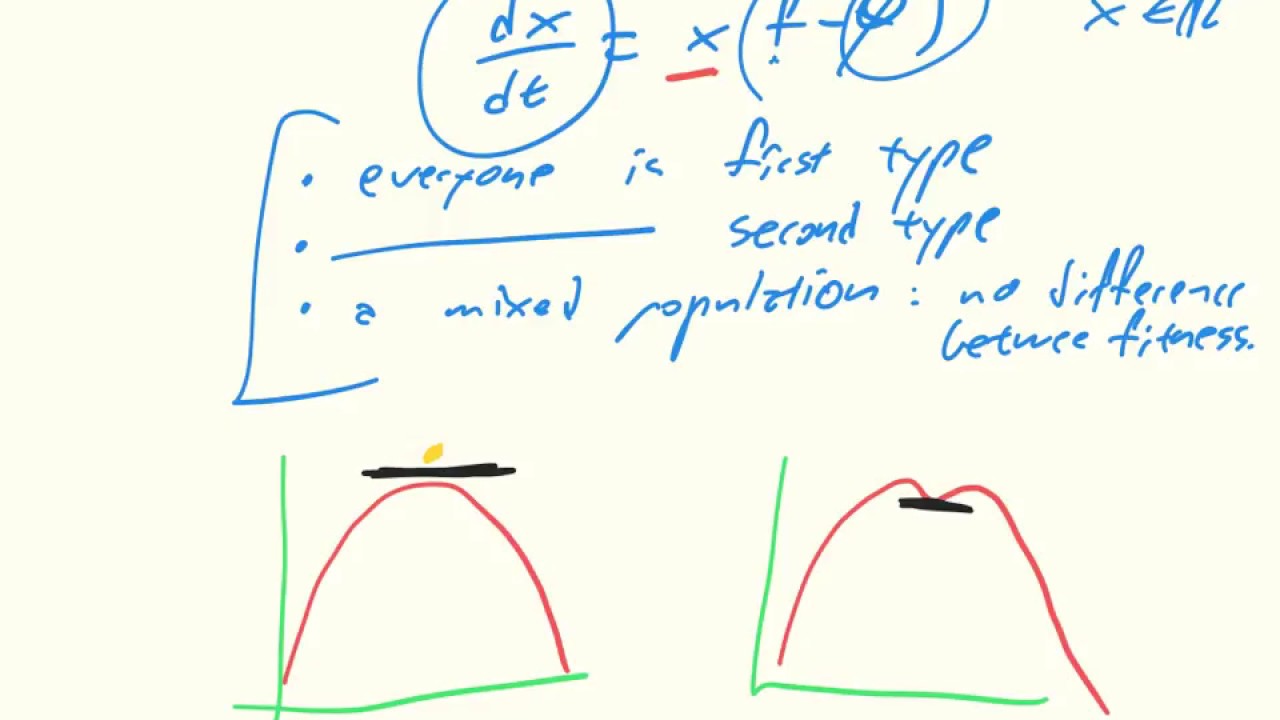 dx/dt = x(f - φ) x ∈ ℝ
• everyone is first type
• ———— second type
• a mixed population : no difference
betwee fitness.